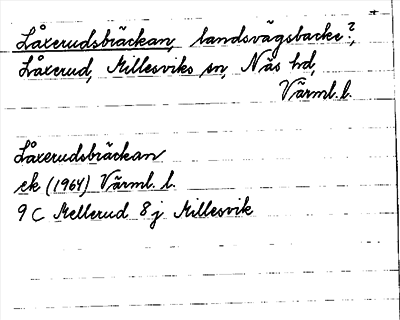 Låxerudsbräckan, landsvägsbacke?,
Låxerud, Millesviks sn, Näs hd,
Värml. l.
Låxerudsbräckan
ek (1964) Värml. l.
9 C Mellerud 8 j Millesvik